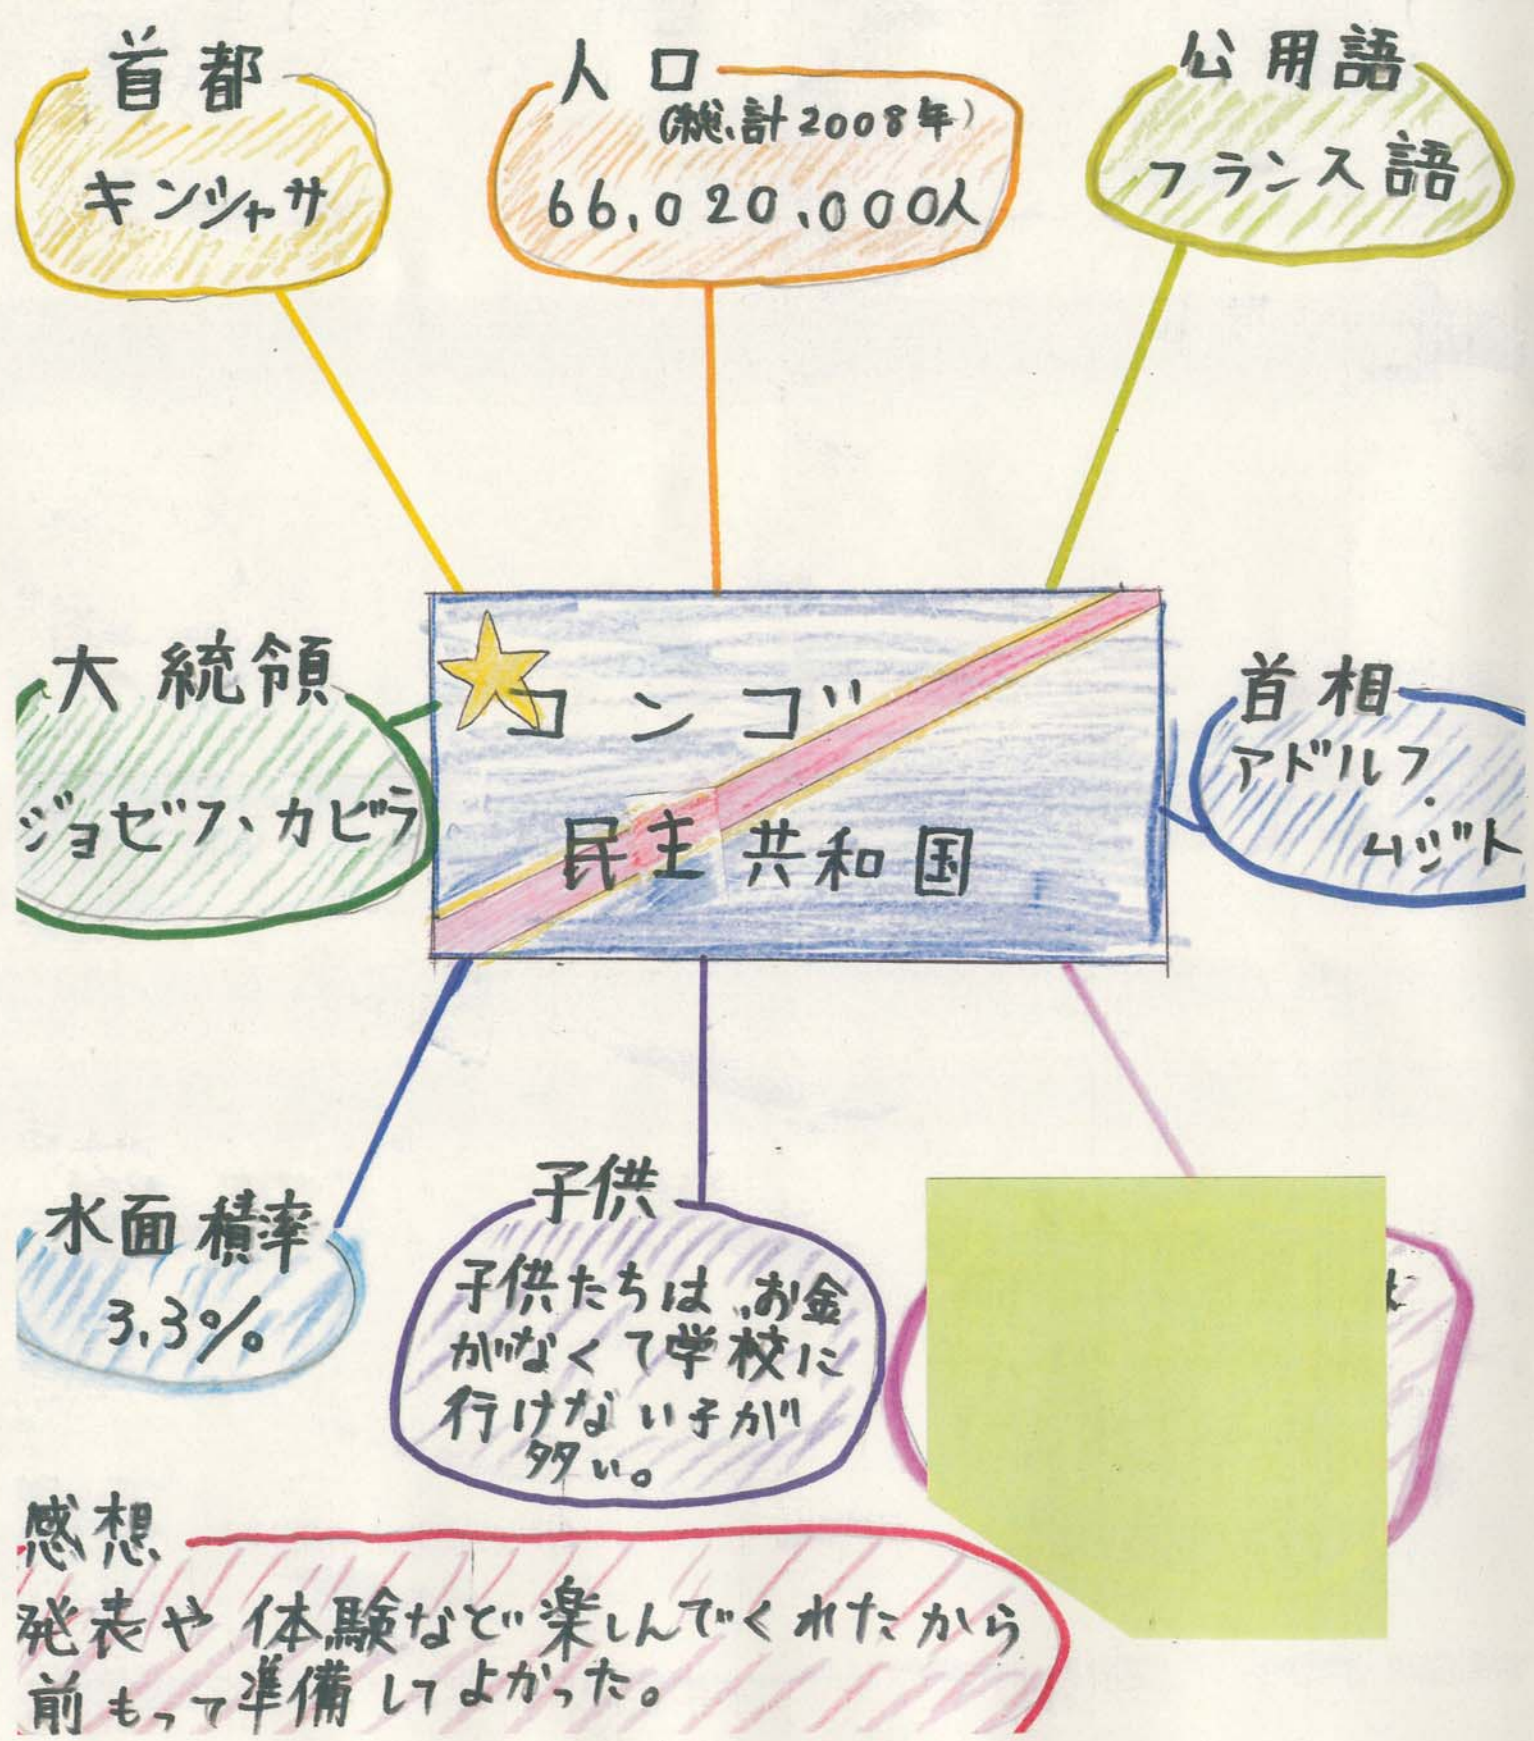 首都
キンシャサ
人口
(総計2008年)
66,020,000人
公用語
フランス語
大統領
ジョゼフ、カビラ
コンゴ
民主共和国
首相
アドルフ.
ムジト
水面積率
3.3%
子供
子供たちは、お金
がなくて学校に
行けない子が
多い。
感想
発表や体験などで楽しんでくれたから
前もって準備してよかった。